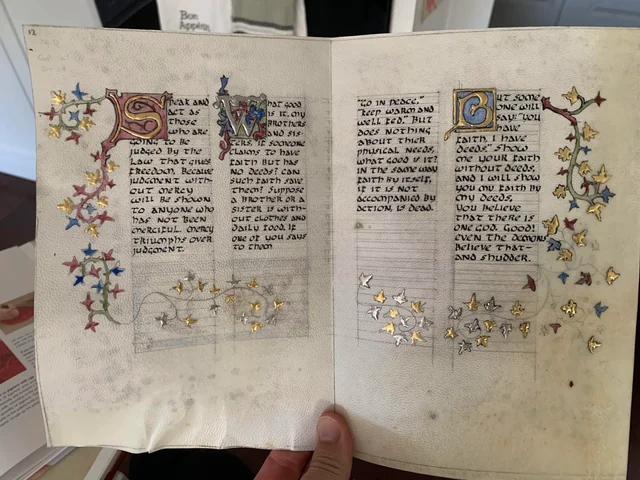 Bon
Appétit
12
SPEAK AND
ACT AS
THOSE
WHO ARE
GOING TO BE
JUDGED BY THE
LAW THAT GIVES
FREEDOM, BECAUSE
JUDGMENT WITH-
OUT MERCY
WILL BE SHOWN
TO ANYONE WHO
HAS NOT BEEN
MERCIFUL. MERCY
TRIUMPHS OVER
JUDGMENT.
WHAT GOOD
IS IT, MY
BROTHERS
AND SIS-
TERS, IF SOMEONE
CLAIMS TO HAVE
FAITH BUT HAS
NO DEEDS? CAN
SUCH FAITH SAVE
THEM? SUPPOSE
A BROTHER OR A
SISTER IS WITH-
OUT CLOTHES AND
DAILY FOOD. IF
ONE OF YOU SAYS
TO THEM
"GO IN PEACE,"
"KEEP WARM AND
WELL FED," BUT
DOES NOTHING
ABOUT THIER
PHYSICAL NEEDS,
WHAT GOOD IS IT?
IN THE SAME WAY
FAITH BY ITSELF,
IF IT IS NOT
ACCOMPANIED BY
ACTION, IS DEAD.
BUT SOME
ONE WILL
SAY: "YOU
HAVE
FAITH, I HAVE
DEEDS." SHOW
ME YOUR FAITH
WITHOUT DEEDS,
AND I WILL SHOW
YOU MY FAITH BY
MY DEEDS.
YOU BELIEVE
THAT THERE IS
ONE GOD. GOOD!
EVEN THE DEMONS
BELIEVE THAT–
AND SHUDDER.